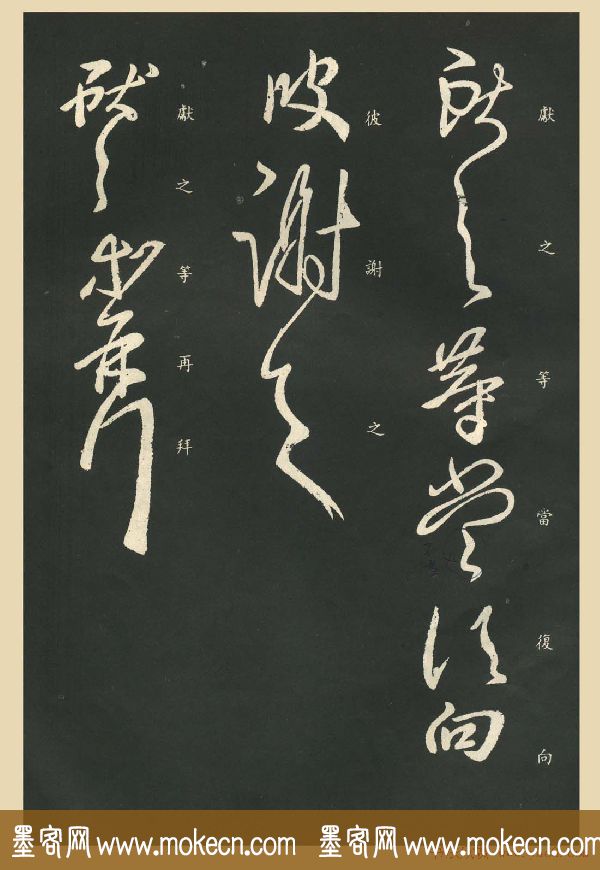 獻之等當復向
彼謝之
獻之等再拜
墨客网 www.mokecn.com 墨客网 www.mokecn.com